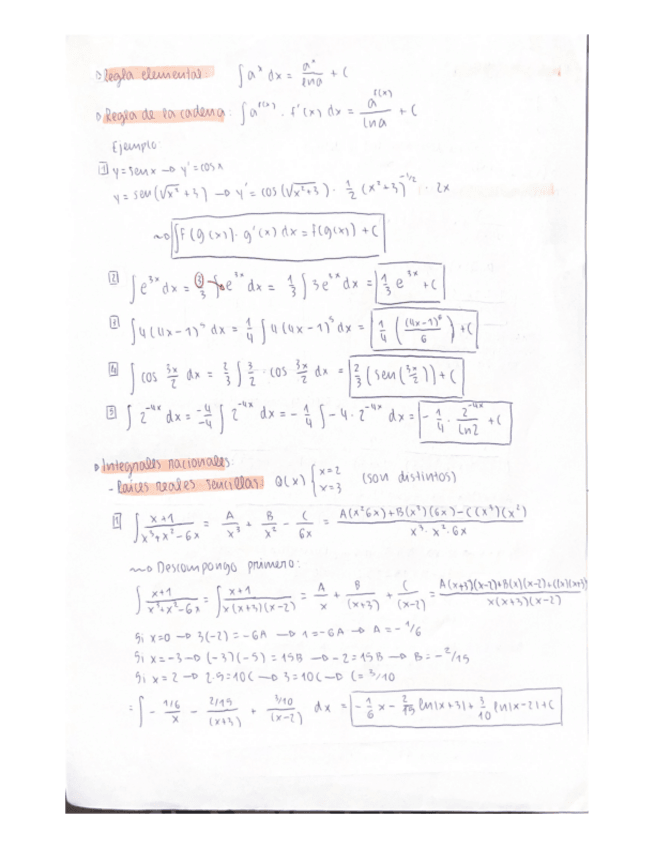 Regla elemental: ∫ a^x dx = a^x / ln a + C
Regla de la cadena: ∫ a^f(x) · f'(x) dx = a^f(x) / ln a + C
Ejemplo:
1 y = sen x → y' = cos x
y = sen(√x² + 3) → y' = cos(√x²+3) · 1/2 (x²+3)^-1/2 · 2x
∫ f(g(x)) · g'(x) dx = f(g(x)) + C
2 ∫ e^3x dx = 3/3 ∫ e^3x dx = 1/3 ∫ 3e^3x dx = 1/3 e^3x + C
3 ∫ 4(4x-1)^5 dx = 1/4 ∫ 4(4x-1)^5 dx = 1/4 ((4x-1)^6 / 6) + C
4 ∫ cos 3x/2 dx = 2/3 ∫ 3/2 · cos 3x/2 dx = 2/3 (sen(3x/2)) + C
5 ∫ 2^-4x dx = -4/-4 ∫ 2^-4x dx = -1/4 ∫ -4 · 2^-4x dx = -1/4 · 2^-4x / ln2 + C
Integrales racionales:
- Raíces reales sencillas: Q(x) { x=2 x=3 (son distintos)
1 ∫ x+1 / x³+x²-6x = A/x³ + B/x² - C/6x = A(x²6x)+B(x³)(6x)-C(x³)(x²) / x³·x²·6x
Descompongo primero:
∫ x+1 / x³+x²-6x = ∫ x+1 / x(x+3)(x-2) = A/x + B/(x+3) + C/(x-2) = A(x+3)(x-2)+B(x)(x-2)+C(x)(x+3) / x(x+3)(x-2)
Si x=0 → 3(-2) = -6A → 1 = -6A → A = -1/6
Si x=-3 → (-3)(-5) = 15B → -2 = 15B → B = -2/15
Si x=2 → 2·5 = 10C → 3 = 10C → C = 3/10
= ∫ - 1/6 / x - 2/15 / (x+3) + 3/10 / (x-2) dx = -1/6 x - 2/15 ln|x+3| + 3/10 ln|x-2| + C